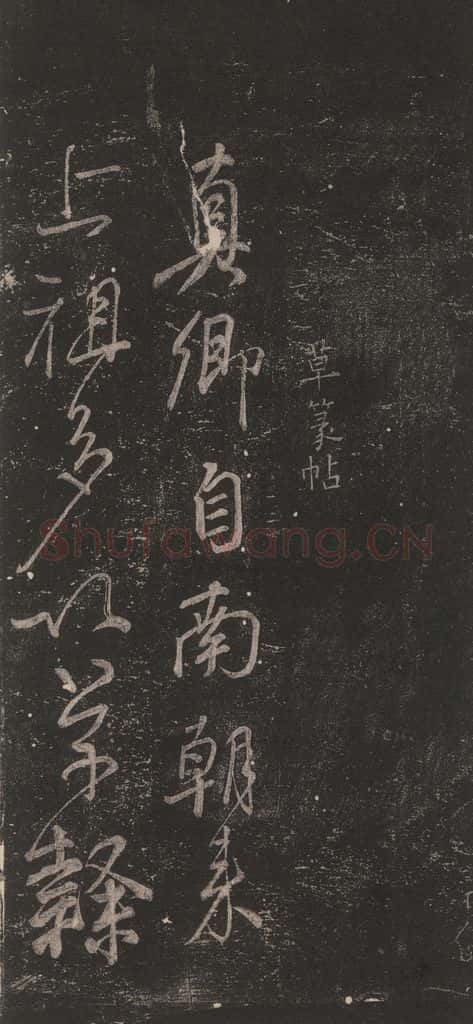 草篆帖
真卿自南朝来
上祖多以草隸
Shufawang.CN